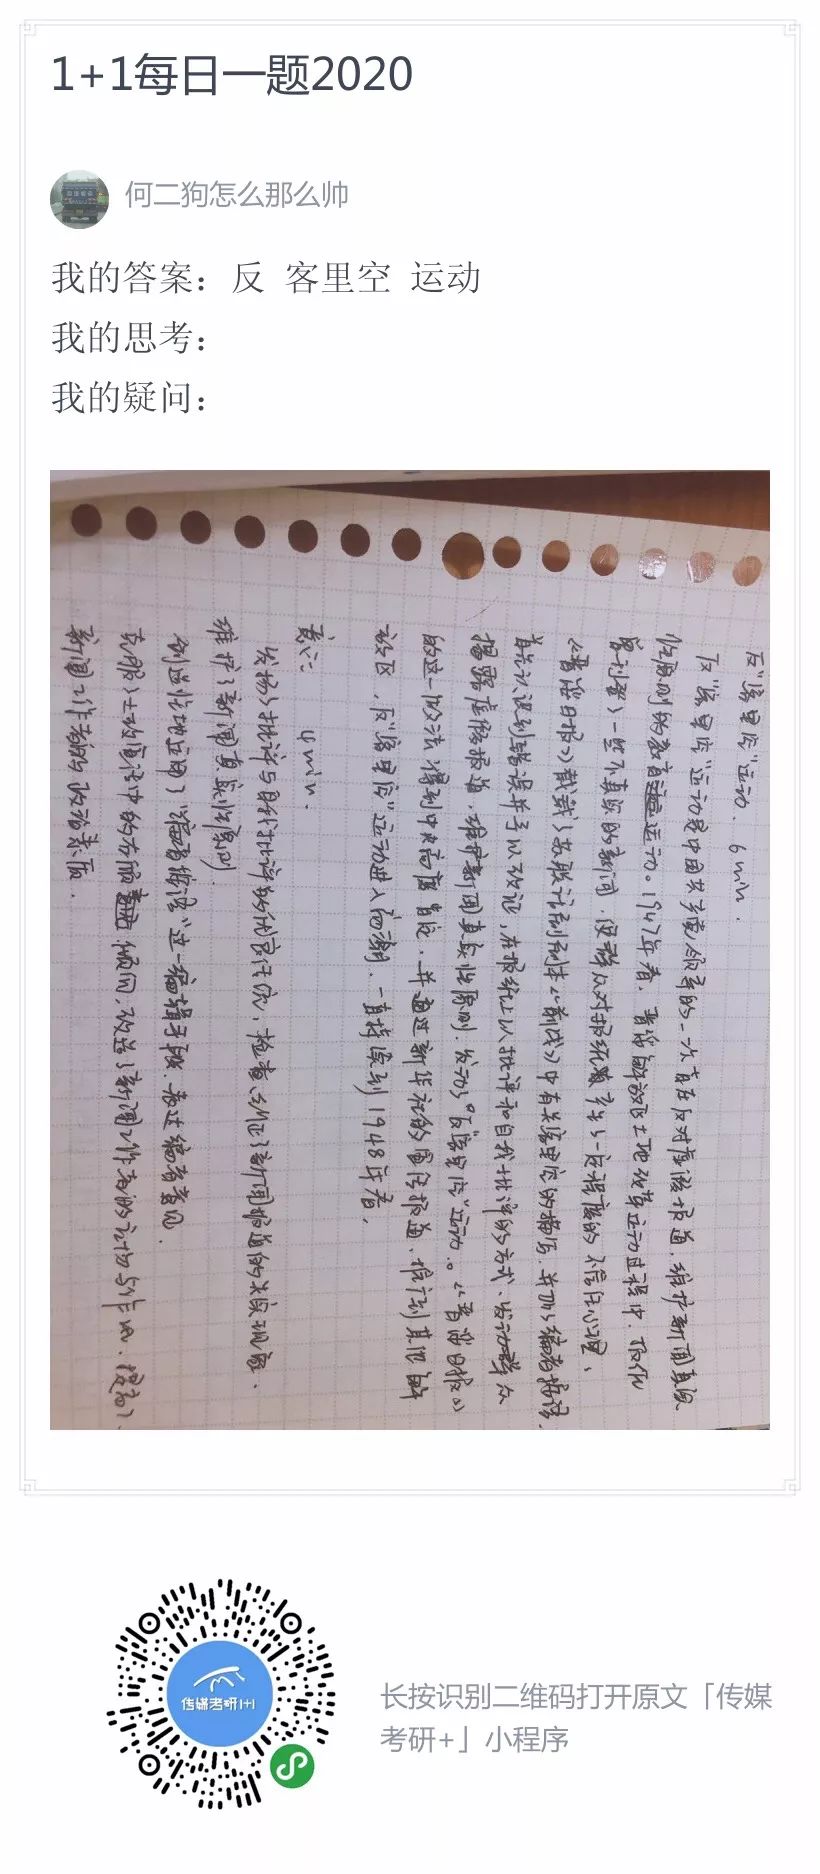 1+1每日一题2020
何二狗怎么那么帅
我的答案：反 客里空 运动
我的思考：
我的疑问：
反“客里空”运动. 6min.
反“客里空”运动是中国共产党领导的一次旨在反对虚假报道，维护新闻真实
性原则的教育运动。1947年春，晋绥解放区土地改革运动过程中，
客刊登了一些不真实的新闻，使群众对报纸产生了一定程度的不信任心理，
《晋绥日报》载了苏联话剧《前线》中有关客里空的描写，并加了编者按语，
其认识到错误并予以改正，在报纸上以批评和自我批评的方式，发动群众
揭露虚假报道，维护新闻真实性原则，发动了“反客里空”运动。《晋绥日报》
的这一做法得到中央高度肯定，并通过新华社的宣传报道，推行到其他解
放区，反“客里空”运动进入高潮，一直持续到1948年春，
意义： 4min.
发扬了批评与自我批评的优良作风，检查纠正了新闻报道的失实现象，
维护了新闻真实性原则.
创造性地运用了“编者按语”这一编辑手段，表达编者意见.
克服了土改宣传中的右倾倾向，改造了新闻工作者的立场与作风，提高了
新闻工作者的政治素质.
传媒考研1+1
长按识别二维码打开原文「传媒
考研+」小程序